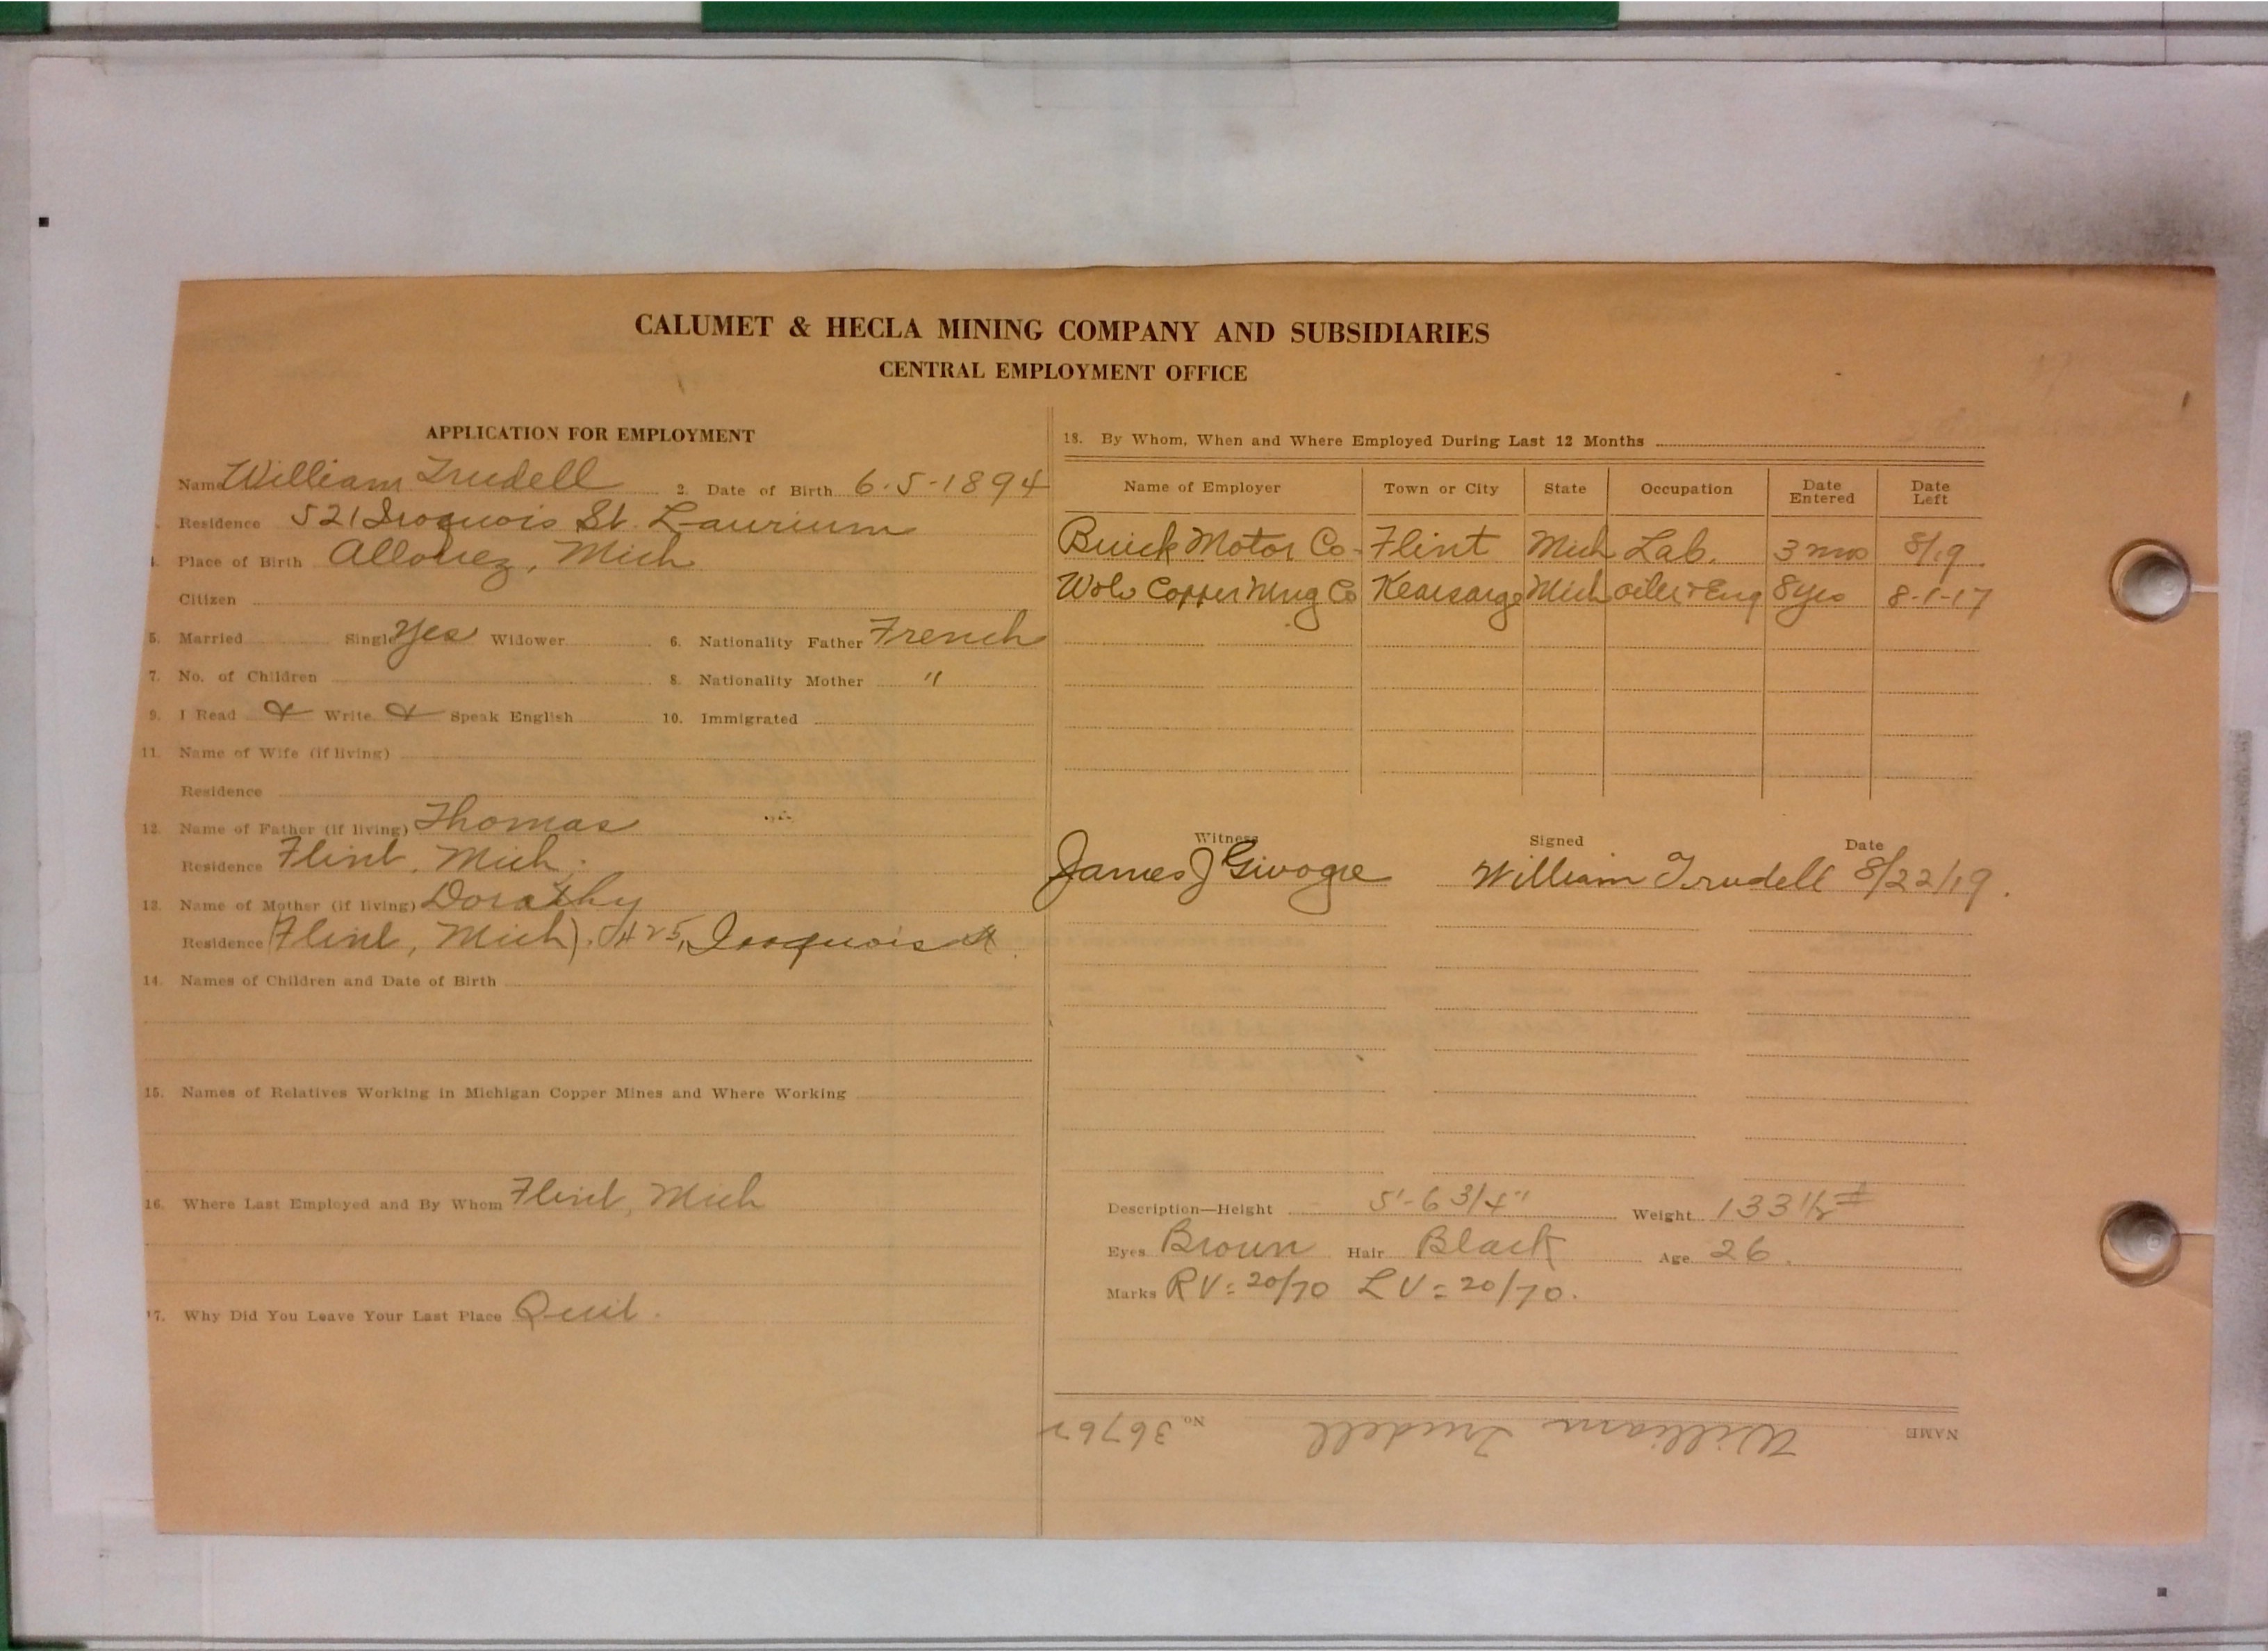 CALUMET & HECLA MINING COMPANY AND SUBSIDIARIES
CENTRAL EMPLOYMENT OFFICE
APPLICATION FOR EMPLOYMENT
Name William Trudell 2. Date of Birth 6-5-1894
Residence 521 Iroquois St. Laurium
Place of Birth Allouez, Mich
Citizen
5. Married Single Yes Widower 6. Nationality Father French
7. No. of Children 8. Nationality Mother "
9. I Read & Write & Speak English 10. Immigrated
11. Name of Wife (if living)
Residence
12. Name of Father (if living) Thomas
Residence Flint, Mich.
13. Name of Mother (if living) Dorathy
Residence (Flint, Mich). 425, Iroquois St
14. Names of Children and Date of Birth
15. Names of Relatives Working in Michigan Copper Mines and Where Working
16. Where Last Employed and By Whom Flint, Mich
17. Why Did You Leave Your Last Place Quit.
18. By Whom, When and Where Employed During Last 12 Months
Name of Employer Town or City State Occupation Date Entered Date Left
Buick Motor Co. Flint Mich Lab. 3 mo 8/19
Wolv Copper Mng Co Kearsarge Mich oiler & Eng 8 yrs 8-1-17
Witness Signed Date
James J Givogre William Trudell 8/22/19.
Description—Height 5'-6 3/4" Weight 133 1/2 #
Eyes Brown Hair Black Age 26.
Marks RV = 20/70 LV = 20/70.
NAME William Trudell No. 36762